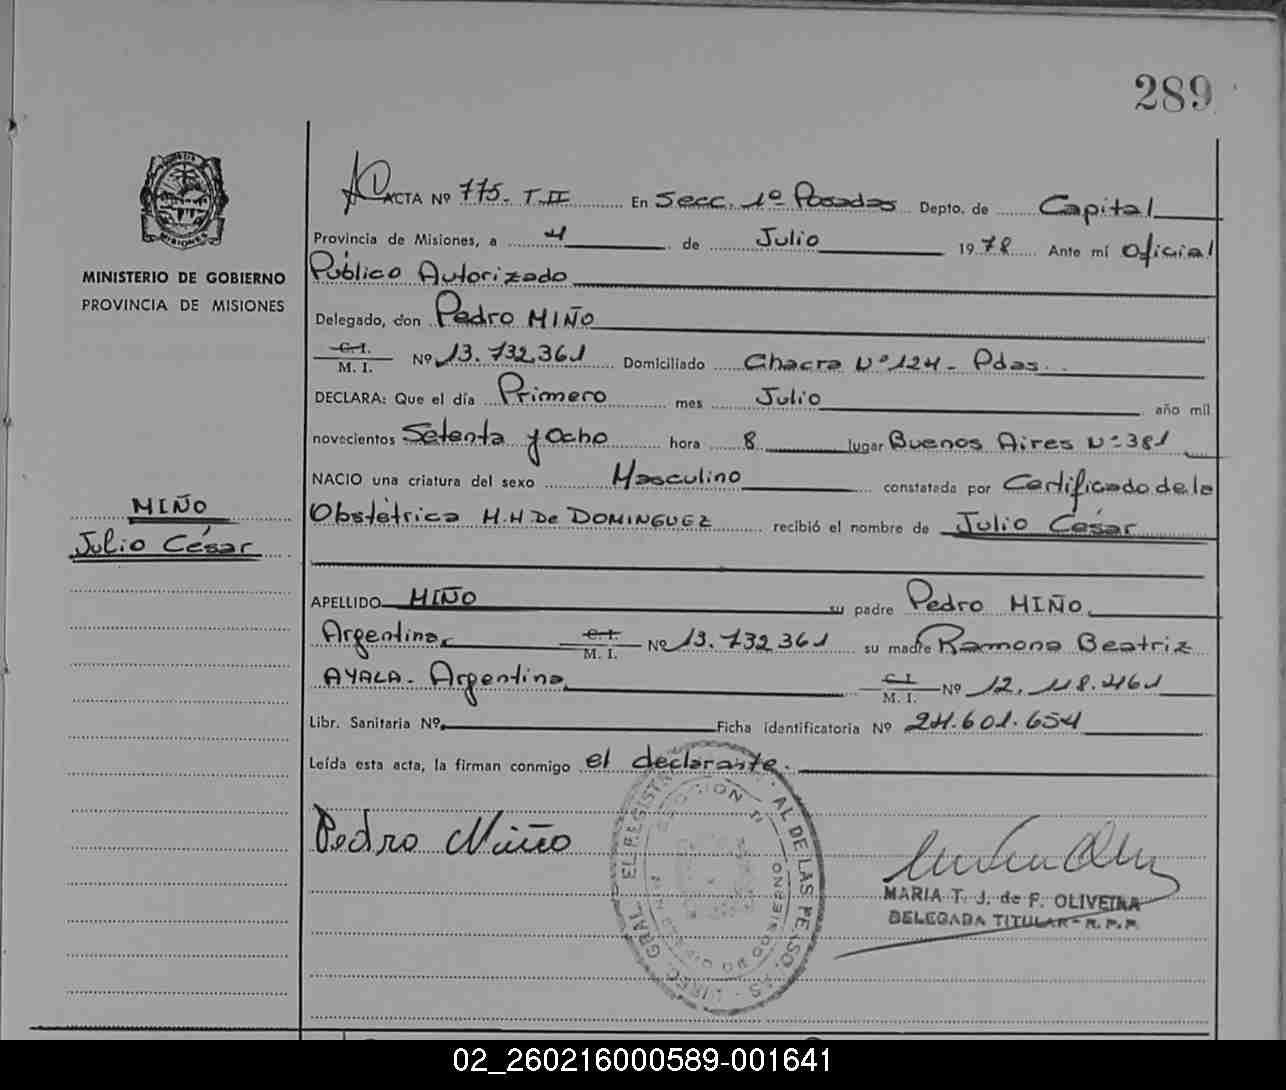 289
ACTA Nº 775. T. II En Secc. 1º Posadas Depto. de Capital
Provincia de Misiones, a 4 de Julio 1978 Ante mí Oficial
Público Autorizado
Delegado, don Pedro MIÑO
C. I. / M. I. Nº 13.732.361 Domiciliado Chacra Nº 124 - Pdas.
DECLARA: Que el día Primero mes Julio año mil
novecientos Setenta y Ocho hora 8 lugar Buenos Aires Nº 381
NACIO una criatura del sexo Masculino constatada por Certificado de la
Obstétrica H.H De DOMINGUEZ recibió el nombre de Julio César
APELLIDO MIÑO su padre Pedro MIÑO,
Argentino, C. I. / M. I. Nº 13.732.361 su madre Ramona Beatriz
AYALA - Argentina, C. I. / M. I. Nº 12.118.461
Libr. Sanitaria Nº Ficha identificatoria Nº 24.601.654
Leída esta acta, la firman conmigo el declarante.
Pedro Miño
MARIA T. J. de F. OLIVEIRA
DELEGADA TITULAR - R. P. P.
MISIONES
MINISTERIO DE GOBIERNO
PROVINCIA DE MISIONES
MIÑO
Julio César
02_260216000589-001641